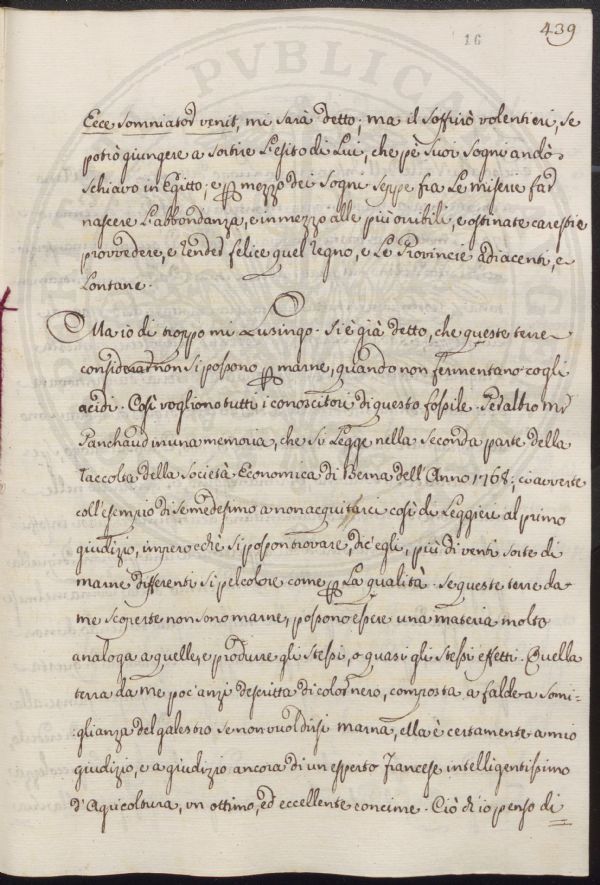 439
16
PVBLICA
Ecce somniator venit, mi sarà detto; ma il soffrirò volentieri, se
potrò giungere a sortire l'esito di Lui, che pè suoi sogni andò
schiavo in Egitto; e p mezzo dei sogni seppe fra le miserie far
nascere l'abbondanza, e in mezzo alle più orribili, e ostinate carestie
provvedere, e render felice quel regno, e le Provincie adiacenti, e
lontane.
Ma io di troppo mi lusingo. Si è già detto, che queste terre
considerar non si possono p marne, quando non fermentano cogli
acidi. Così vogliono tutti i conoscitori di questo fossile. Per altro Mr
Panchaud in una memoria, che si legge nella seconda parte della
raccolta della Società Economica di Berna dell'Anno 1768; ci avverte
coll'esempio di se medesimo a non acquitarci così di leggieri al primo
giudizio, imperocchè si posson trovare, dic'egli, più di venti sorte di
marne differenti sì pel colore come p la qualità. Se queste terre da
me scoperte non sono marne, possono essere una materia molto
analoga a quelle, e produrre gli stessi, o quasi gli stessi effetti. Quella
terra da me poc'anzi descritta di color nero, composta a falde a somi=
glianza del galestro se non vuol dirsi marna, ella è certamente a mio
giudizio, e a giudizio ancora di un esperto Francese intelligentissimo
d'Agricoltura, un ottimo, ed eccellente concime. Ciò ch'io penso di